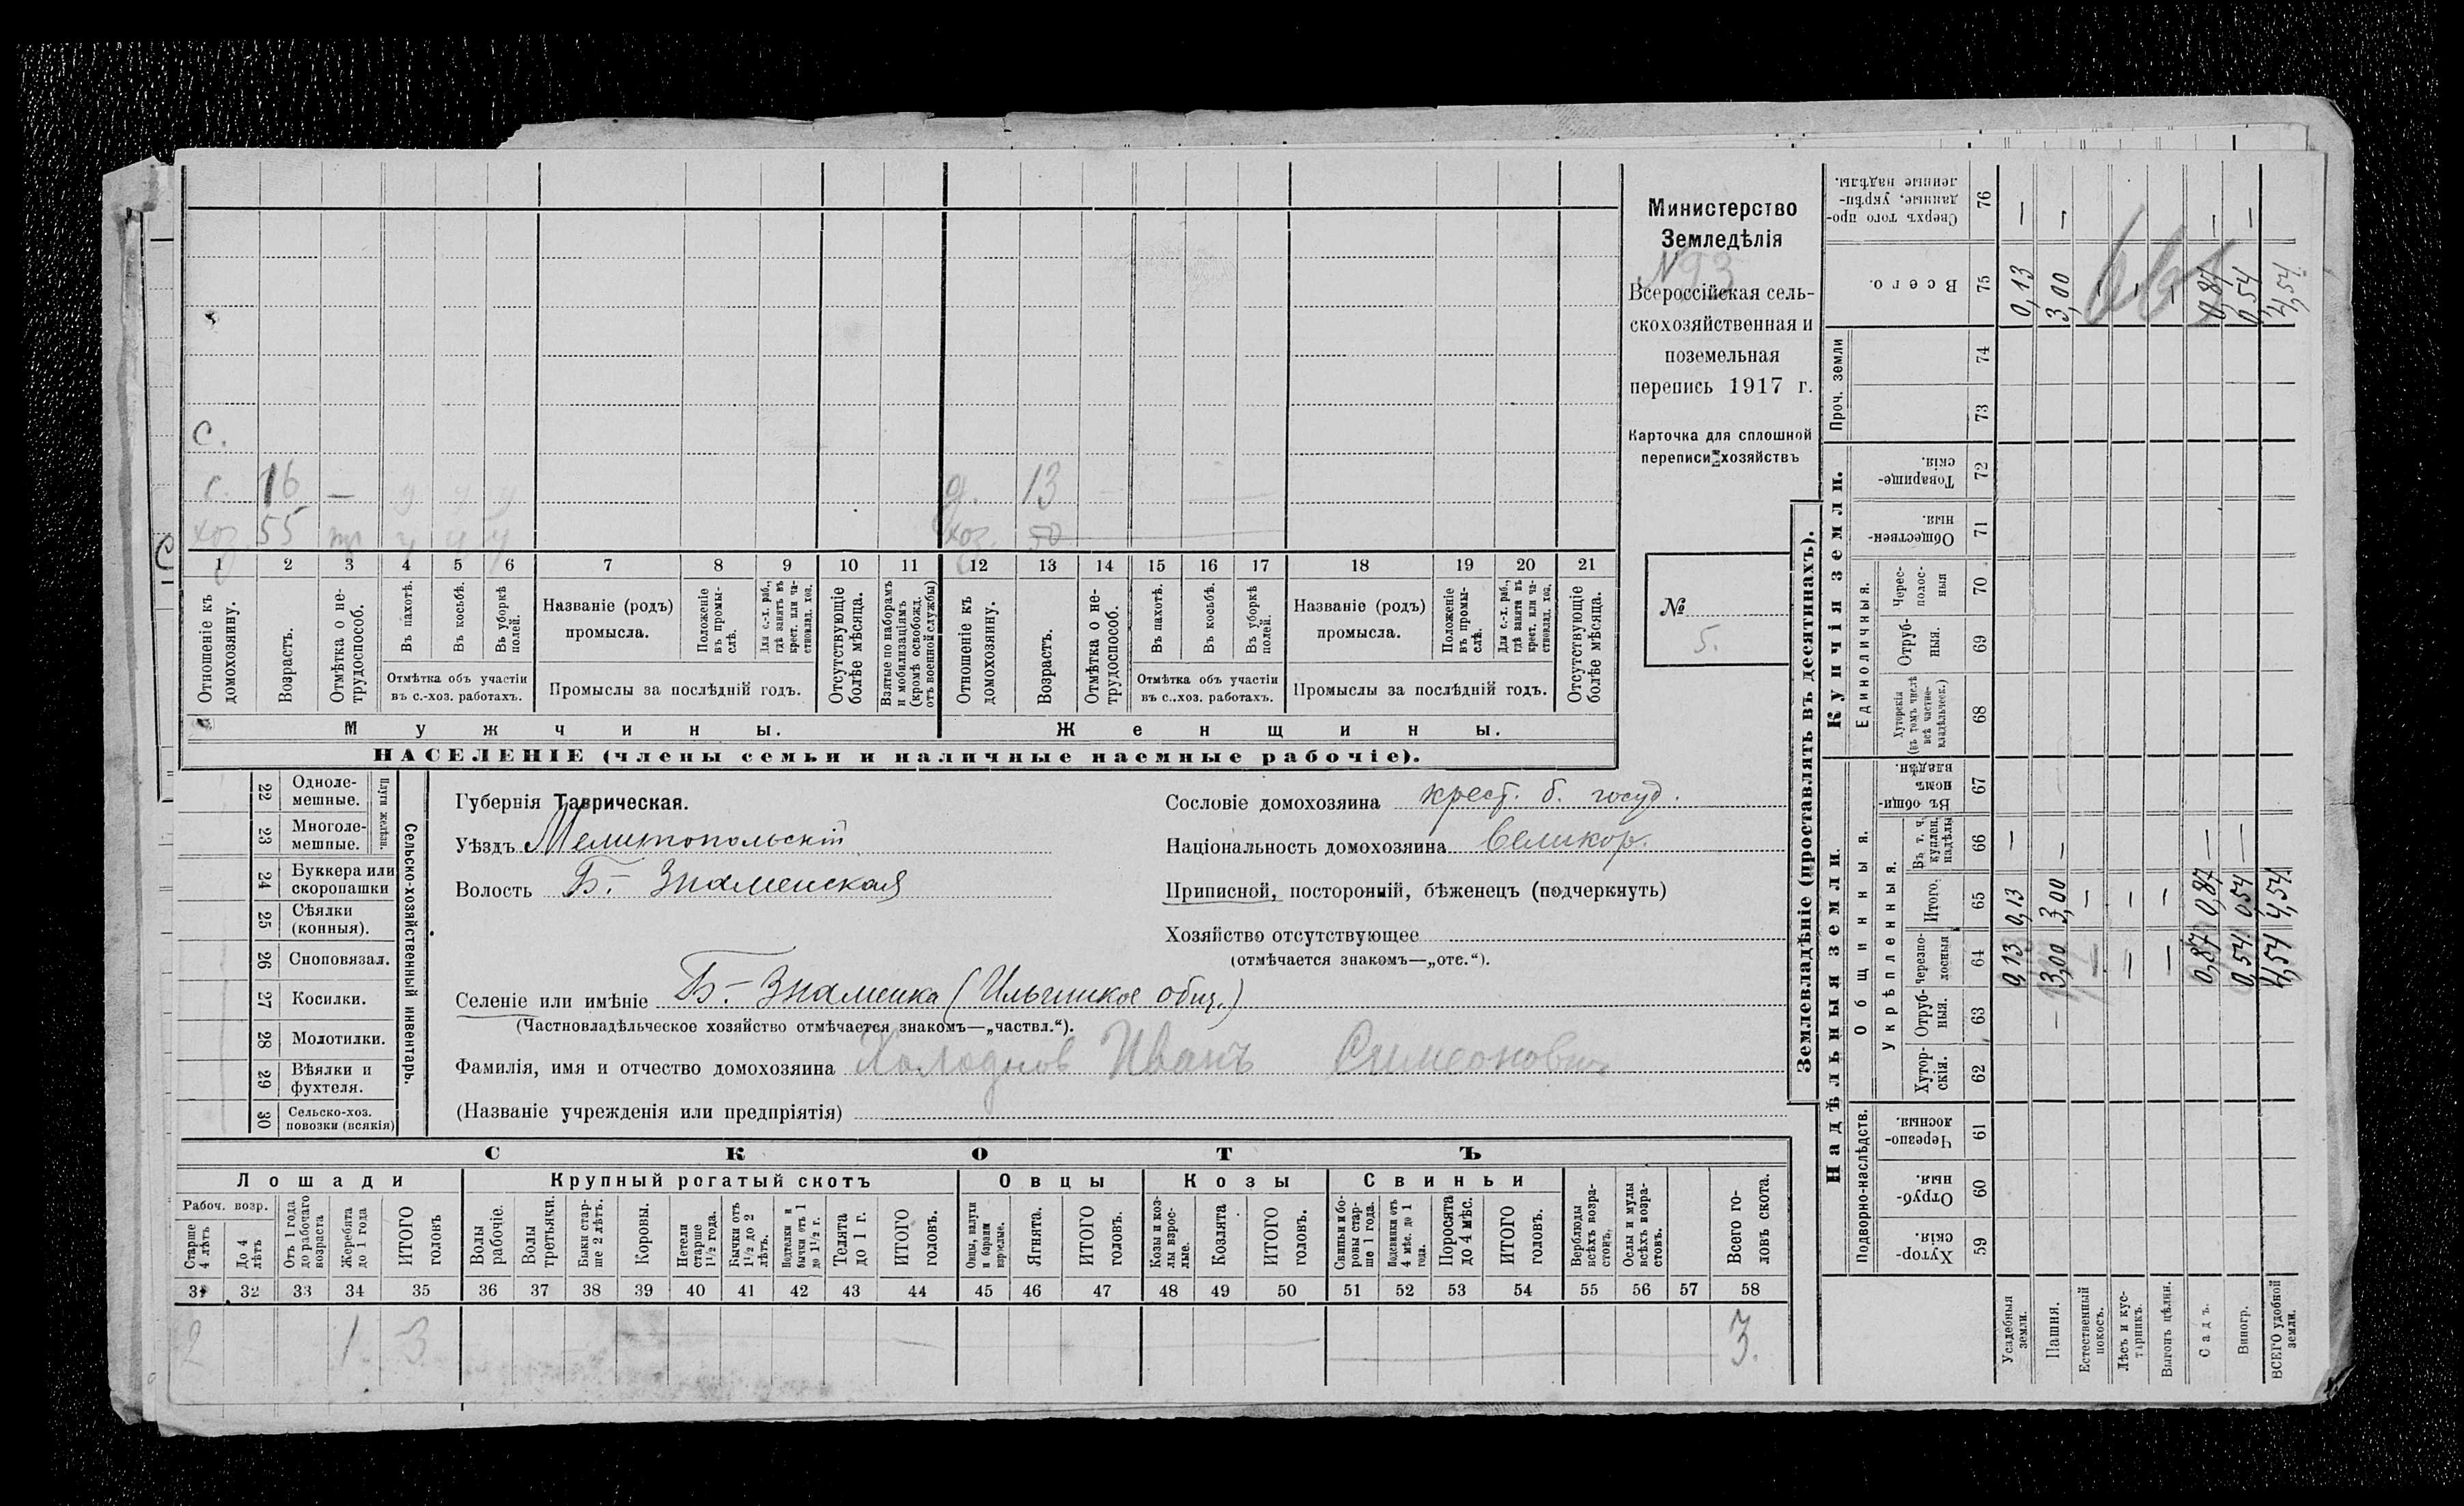 с.
с. 16 —
д. 13
хоз. 55
хоз. 50
1 2 3 4 5 6 7 8 9 10 11 12 13 14 15 16 17 18 19 20 21
Отношеніе къ домохозяину.
Возрастъ.
Отмѣтка о нетрудоспособ.
Въ пахотѣ.
Въ косьбѣ.
Въ уборкѣ полей.
Отмѣтка объ участіи
въ с.-хоз. работахъ.
Названіе (родъ)
промысла.
Положеніе въ промыслѣ.
Для с.-х. раб., гдѣ занятъ въ крест. или частновлад. хоз.
Промыслы за послѣдній годъ.
Отсутствующіе болѣе мѣсяца.
Взятые по наборамъ и мобилизаціямъ (кромѣ освобожд. отъ военной службы)
Отношеніе къ домохозяину.
Возрастъ.
Отмѣтка о нетрудоспособ.
Въ пахотѣ.
Въ косьбѣ.
Въ уборкѣ полей.
Отмѣтка объ участіи
въ с..хоз. работахъ.
Названіе (родъ)
промысла.
Положеніе въ промыслѣ.
Для с.-х. раб., гдѣ занята въ крест. или частновлад. хоз.
Промыслы за послѣдній годъ.
Отсутствующіе болѣе мѣсяца.
Мужчины.
Женщины.
НАСЕЛЕНІЕ (члены семьи и наличные наемные рабочіе).
Министерство
Земледѣлія
Всероссійская сель-
скохозяйственная и
поземельная
перепись 1917 г.
Карточка для сплошной
переписи хозяйствъ
№
5.
Сельско-хозяйственный инвентарь.
Плуги желѣзн.
22 Одноле-
мешные.
23 Многоле-
мешные.
24 Буккера или
скоропашки
25 Сѣялки
(конныя).
26 Сноповязал.
27 Косилки.
28 Молотилки.
29 Вѣялки и
фухтеля.
30 Сельско-хоз.
повозки (всякія)
Губернія Таврическая.
Уѣздъ Мелитопольскій
Волость Б.-Знаменская
Сословіе домохозяина крест. б. госуд.
Національность домохозяина Великор.
Приписной, посторонній, бѣженецъ (подчеркнуть)
Хозяйство отсутствующее
(отмѣчается знакомъ—„отс.“).
Селеніе или имѣніе Б.-Знаменка (Ильинское общ.)
(Частновладѣльческое хозяйство отмѣчается знакомъ—„частвл.“).
Фамилія, имя и отчество домохозяина Холоднов Иванъ Симеонович
(Названіе учрежденія или предпріятія)
СКОТЪ
Лошади
Крупный рогатый скотъ
Овцы
Козы
Свиньи
Рабоч. возр.
Старше 4 лѣтъ
До 4 лѣтъ
Отъ 1 года до рабочаго возраста
Жеребята до 1 года
ИТОГО головъ
Волы рабочіе.
Волы третьяки.
Быки старше 2 лѣтъ.
Коровы.
Нетели старше 1½ года.
Бычки отъ 1½ до 2 лѣтъ.
Подтелки и бычки отъ 1 до 1½ г.
Телята до 1 г.
ИТОГО головъ.
Овцы, валухи и бараны взрослые.
Ягнята.
ИТОГО головъ.
Козы и козлы взрослые.
Козлята
ИТОГО головъ.
Свиньи и боровы старше 1 года.
Подсвинки отъ 4 мѣс. до 1 года.
Поросята до 4 мѣс.
ИТОГО головъ.
Верблюды всѣхъ возрастовъ.
Ослы и мулы всѣхъ возрастовъ.
Всего головъ скота.
31 32 33 34 35 36 37 38 39 40 41 42 43 44 45 46 47 48 49 50 51 52 53 54 55 56 57 58
2 1 3 3.
Землевладѣніе (проставлять въ десятинахъ).
Надѣльныя земли.
Купчія земли.
Проч. земли
Подворно-наслѣдств.
Общинныя.
Укрѣпленныя.
Единоличныя.
Хуторскія. 59
Отрубныя. 60
Черезполосныя. 61
Хуторскія. 62
Отрубныя. 63
Черезполосныя 64
Итого. 65
Въ т. ч. куплен. надѣлы 66
Въ общинномъ владѣн. 67
Хуторскія (въ томъ числѣ всѣ частновладѣльческ.) 68
Отрубныя. 69
Чересполосныя 70
Общественныя. 71
Товарищескія. 72
73
74
Всего. 75
Сверхъ того проданные, укрѣпленные надѣлы. 76
Усадебныя земли. 0,13 0,13 — 0,13 —
Пашня. 3,00 3,00 — 3,00 —
Естественный покосъ. — —
Лѣсъ и кустарникъ. — — —
Выгонъ цѣлин. — — —
Садъ. 0,87 0,87 — 0,87 —
Виногр. 0,54 0,54 — 0,54 —
ВСЕГО удобной земли. 4,54 4,54 4,54